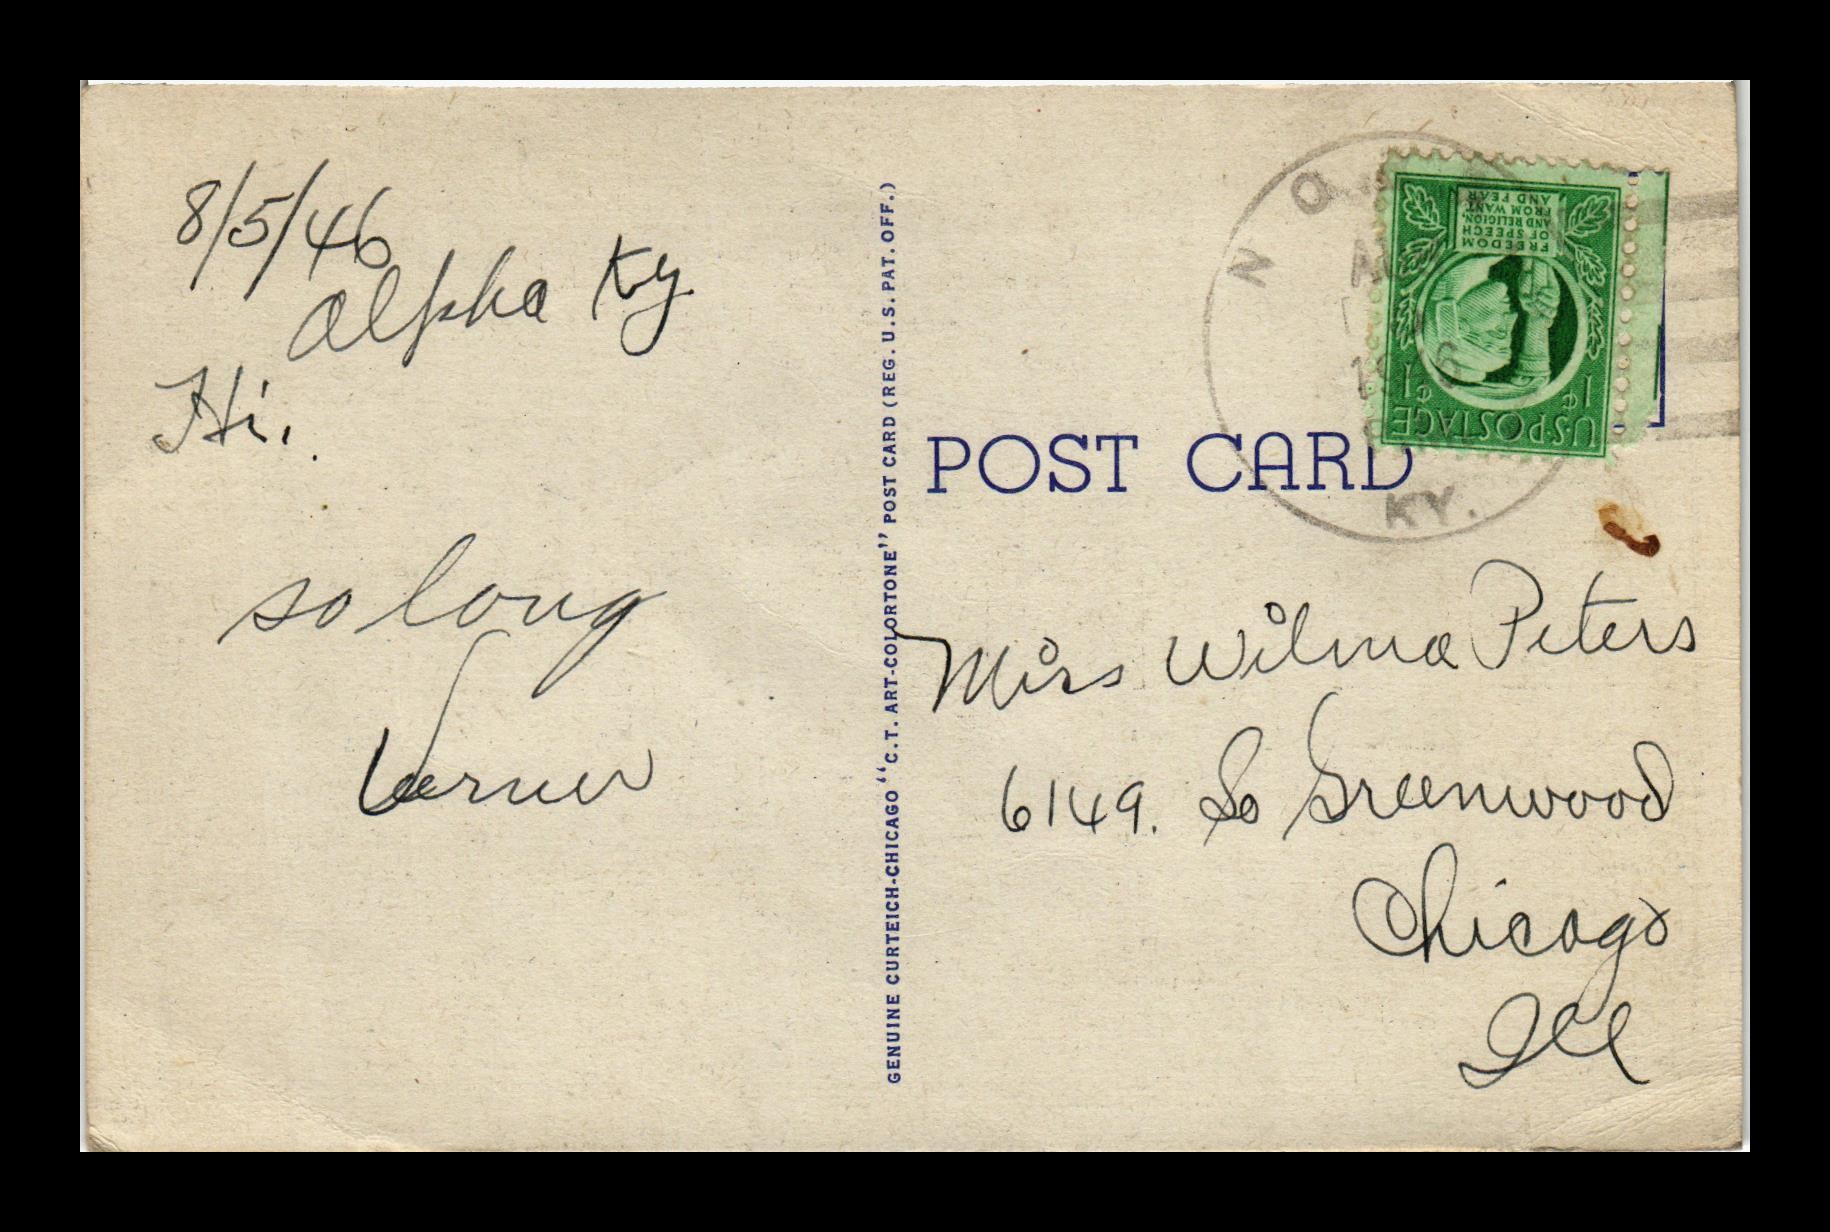 8/5/46
Alpha Ky
Hi.
so long
Verner
GENUINE CURTEICH-CHICAGO "C.T. ART-COLORTONE" POST CARD (REG. U.S. PAT. OFF.)
POST CARD
KY.
FREEDOM
OF SPEECH
AND RELIGION,
FROM WANT
AND FEAR
1¢ 1¢
U.S. POSTAGE
Miss Wilma Peters
6149. So Greenwood
Chicago
Ill